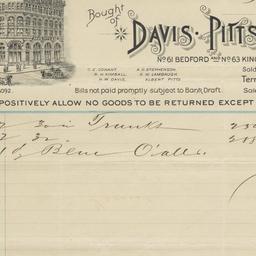 Bought of
DAVIS, PITTS
No 61 BEDFORD AND No 63 KIN
T. E. CONANT A. D. STEPHENSON Sold
R. H. KIMBALL E. W. LAMBAUGH Ter
H. W. DAVIS ALBERT PITTS
5092. Bills not paid promptly subject to Bank Draft. Sale
POSITIVELY ALLOW NO GOODS TO BE RETURNED EXCEPT
Trunks
Blue O'alls.